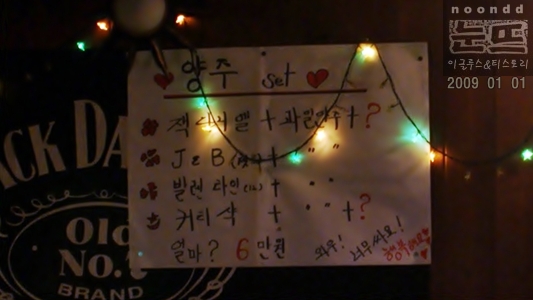 noondd
눈뜨
이글루스&티스토리
2009 01 01
양주 set
잭다니엘 + 과일안주 + ?
J & B + " "
발렌타인 + " "
커티삭 + " " + ?
얼마? 6만원 와우! 너무싸요! 행복해요
JACK DA
Old
No.7
BRAND